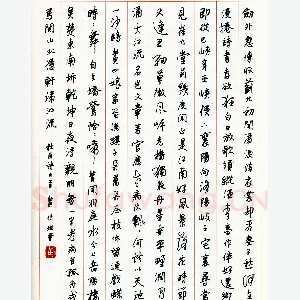 劍外忽傳收薊北初聞涕淚滿衣裳却看妻子愁何在
漫卷詩書喜欲狂白日放歌須縱酒青春作伴好還鄉
即從巴峽穿巫峽便下襄陽向洛陽岐王宅裏尋常
見崔九堂前幾度聞正是江南好風景落花時節
又逢君細草微風岸危檣獨夜舟星垂平野闊月
湧大江流名豈文章著官應老病休飄飄何所似天地
一沙鷗黄四娘家花滿蹊千朵萬朵壓枝低留連戲蝶
時時舞自在嬌鶯恰恰啼昔聞洞庭水今上岳陽樓
吳楚東南坼乾坤日夜浮親朋無一字老病有孤舟戎
馬關山北憑軒涕泗流
杜甫詩五首